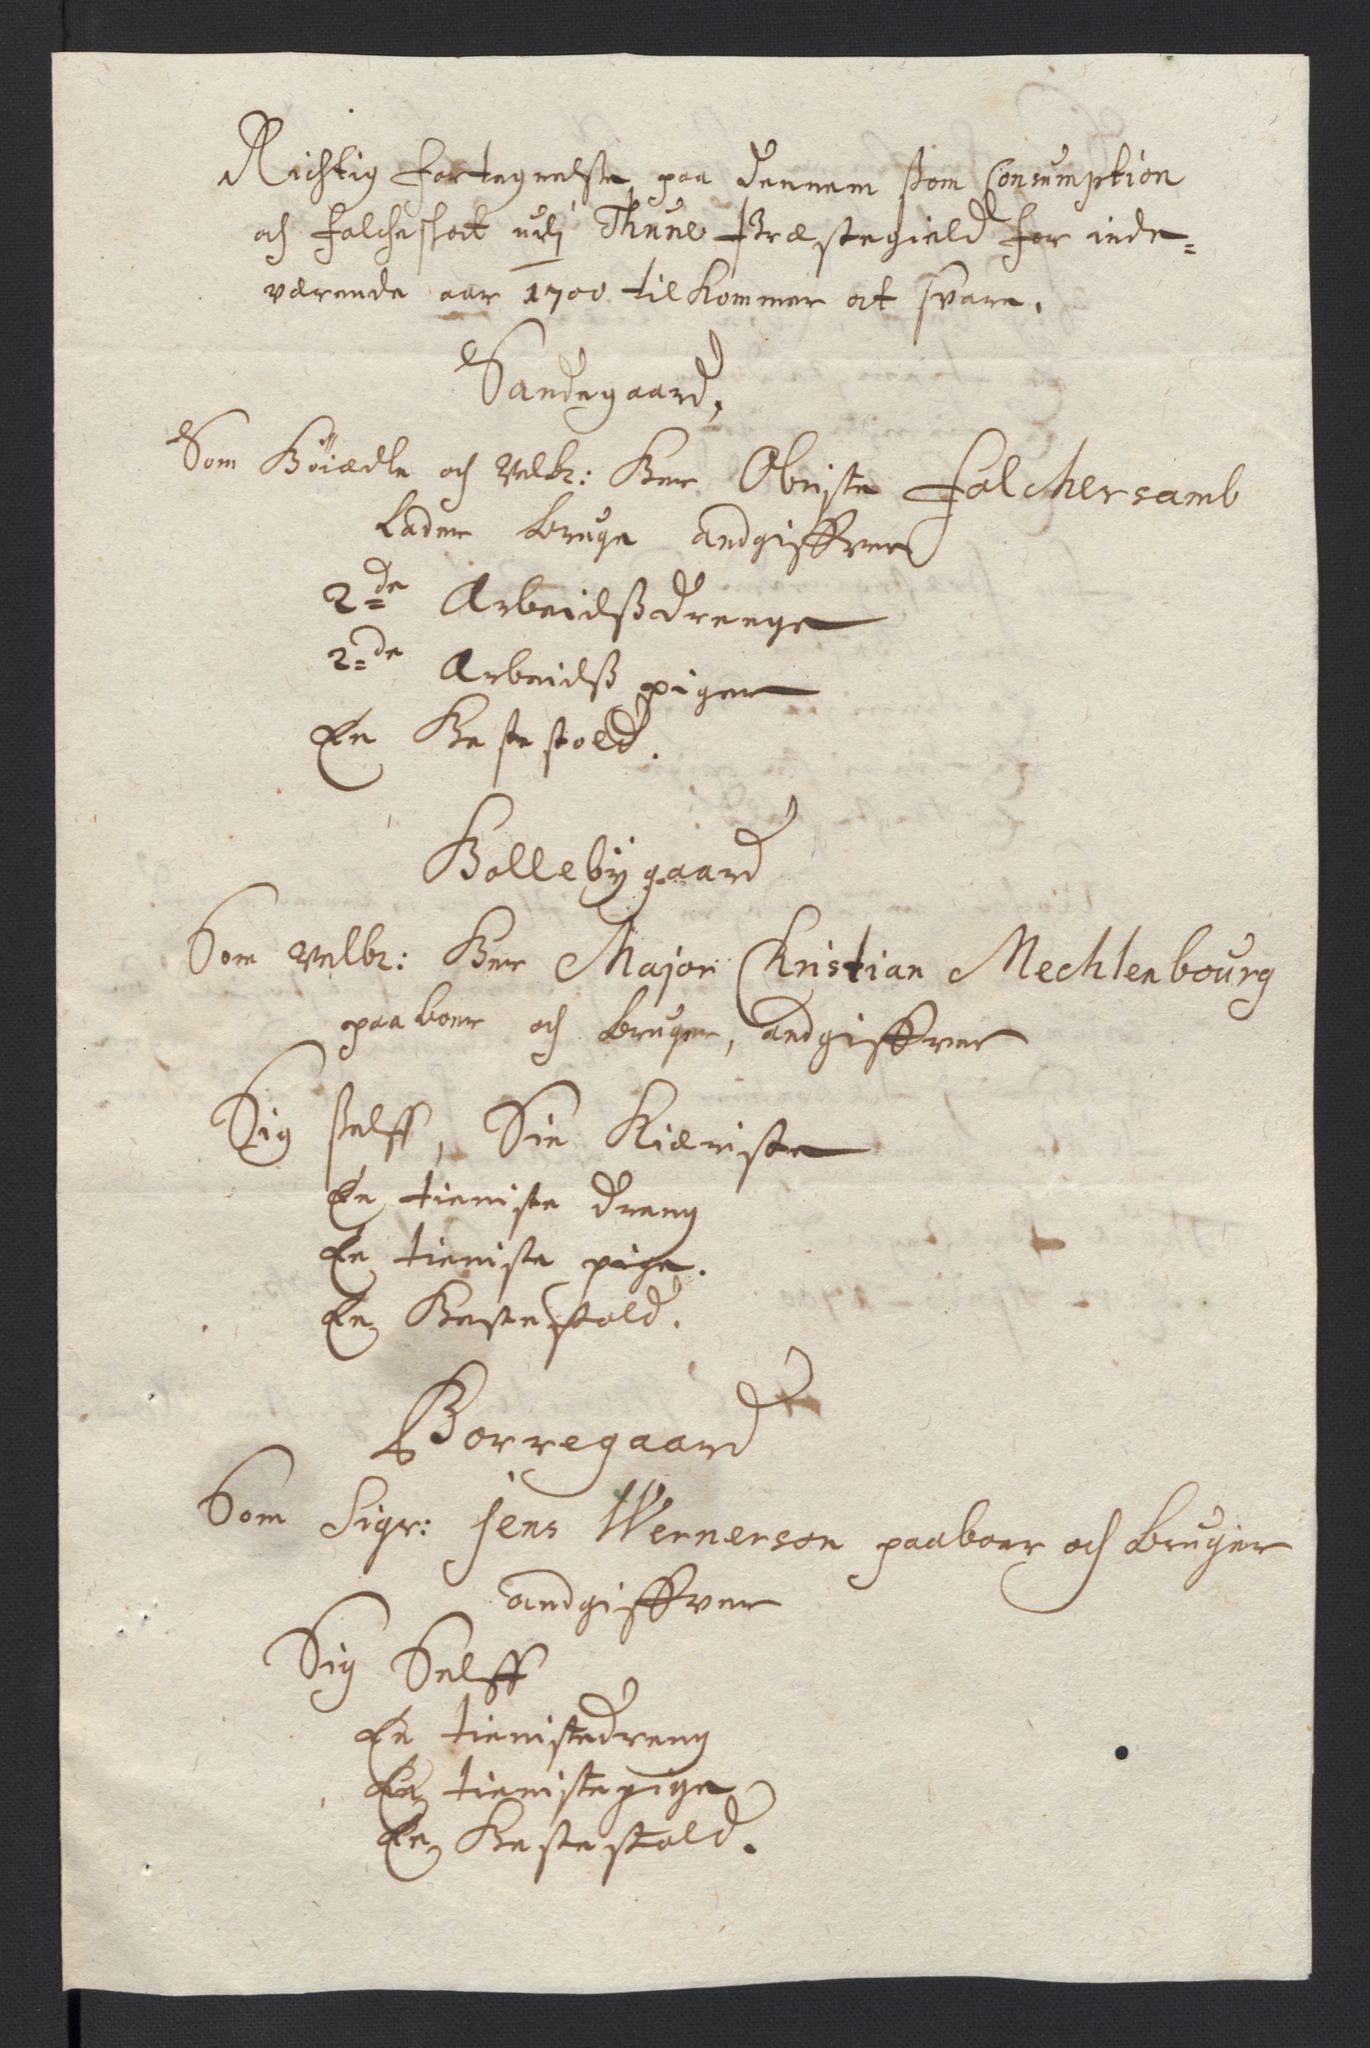 Richtig fortegnelse paa dennem som Consumption
och folcheskat udj Thune Præstegield for inde=
værende aar 1700 tilkommer at svare.
Sandegaard,
Som Höiædle och Velb: Herr Obriste Folchersamb
lader bruge andgiffver
2=de Arbeidsdrenge
2=de Arbeids piger
En Hestestold.
Bollebÿgaard
Som Velb: Herr Major Christian Mechlenbourg
paaboer och bruger, andgiffver
Sig selff, Sin Kieriste
En tieniste dreng
En tieniste pige.
En Hestestold.
Borregaard
Som Sigr: Jens Wernerson paaboer och bruger
andgiffver
Sig Selff
En tienistedreng
En tienistepige
En Hestestold.